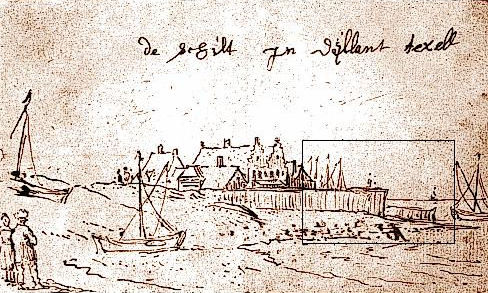 de schilt jn d'ÿllant texell